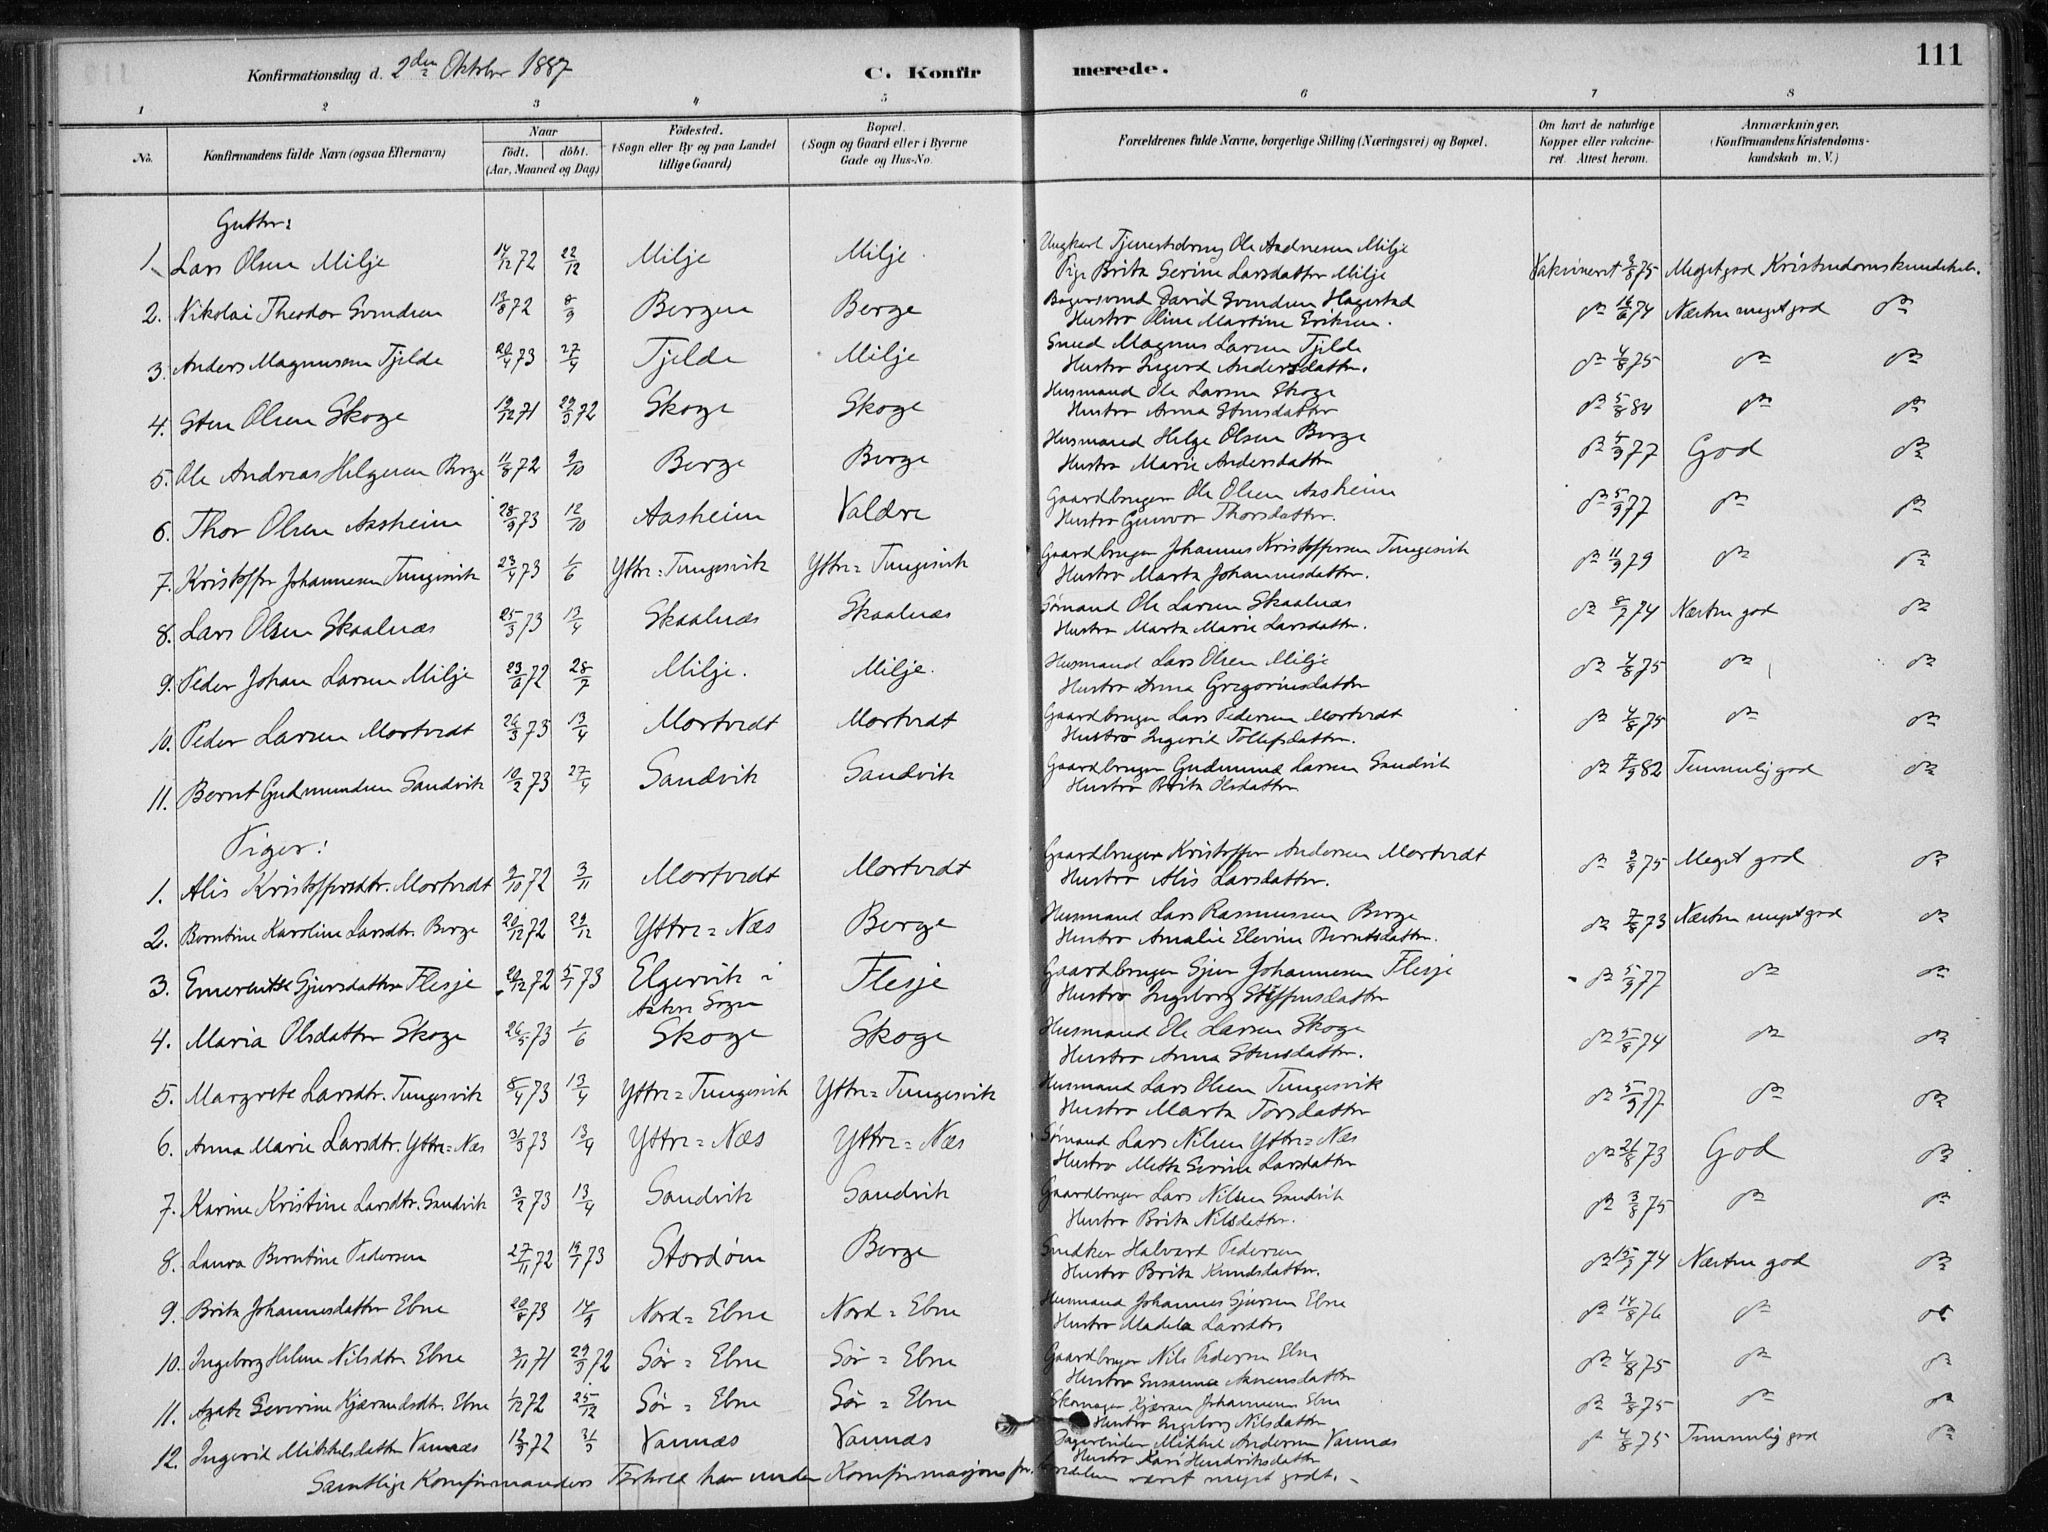 Konfirmationsdag d. 2den Oktober 1887 C. Konfirmerede. 111
1 2 3 4 5 6 7 8
No. Konfirmandens fulde Navn (ogsaa Efternavn) Naar født. døbt. (Aar, Maaned og Dag) Fødested. (Sogn eller By og paa Landet tillige Gaard) Bopæl. (Sogn og Gaard eller i Byerne Gade og Hus-No. Forældrenes fulde Navne, borgerlige Stilling (Næringsvei) og Bopæl. Om havt de naturlige Kopper eller vakcineret. Attest herom. Anmærkninger. (Konfirmandens Kristendomskundskab m. V.)
Gutter:
1. Lars Olsen Milje 14/12 72 22/12 Milje Milje Ungkarl Tjenestedreng Ole Andresen Milje
Pige Brita Serine Larsdatter Milje Vakcineret 3/8 75 Meget god Kristendomskundskab.
2. Nikolai Theodor Svendsen 13/8 72 8/9 Bergen Berge Bagersvend David Svendsen Hagestad
Hustro Oline Martine Eriksen. do 16/6 74 Næsten meget god do
3. Anders Magnusen Tjelde 20/4 73 27/4 Tjelde Milje Smed Magnus Larsen Tjelde
Hustro Ingerd Andersdatter. do 4/8 75 do do
4. Sten Olsen Skoge 19/12 71 29/3 72 Skoge Skoge Husmand Ole Larsen Skoge
Hustro Anna Stensdatter do 5/8 84 do do
5. Ole Andreas Helgesen Berge 11/8 72 9/10 Berge Berge Husmand Helge Olsen Berge
Hustro Marie Andersdatter do 5/9 77 God do
6. Thor Olsen Aasheim 28/9 73 12/10 Aasheim Valdere Gaardbruger Ole Olsen Aasheim
Hustro Gunvor Thorsdatter. do 5/9 77 do do
7. Kristoffer Johannesen Tungesvik 23/4 73 1/6 Yttre=Tungesvik Yttre=Tungesvik Gaardbruger Johannes Kristoffersen Tungesvik
Hustro Marta Johannesdatter. do 11/9 79 do do
8. Lars Olsen Skaalnæs 25/3 73 13/4 Skaalnæs Skaalnæs Sømand Ole Larsen Skaalnæs
Hustro Marta Marie Larsdatter. do 8/7 74 Næsten god do
9. Peder Johan Larsen Milje 23/6 72 28/7 Milje. Milje. Husmand Lars Olsen Milje
Hustro Anna Gregoriusdatter do 4/8 75 do do
10. Peder Larsen Mortvedt 26/3 73 13/4 Mortvedt Mortvedt Gaardbruger Lars Pedersen Mortvedt
Hustro Ingerid Tollefsdatter. do 4/8 75 do do
11. Bernt Gudmundsen Sandvik 10/2 73 27/4 Sandvik Sandvik Gaardbruger Gudmund Larsen Sandvik
Hustro Brita Olsdatter do 7/9 82 Temmelig god do
Piger:
1. Alis Kristoffersdtr. Mortvedt 9/10 72 3/11 Mortvedt Mortvedt Gaardbruger Kristoffer Andersen Mortvedt
Hustro Alis Larsdatter. do 3/8 75 Meget god do
2. Berntine Karoline Larsdtr. Berge 20/12 72 29/12 Yttre=Næs Berge Husmand Lars Rasmussen Berge
Hustro Amalie Elevine Berntsdatter. do 7/8 73 Næsten meget god do
3. Emerentse Sjursdatter Flesje 20/12 72 5/1 73 Elgervik i Askers Sogn Flesje Gaardbruger Sjur Johannesen Flesje
Hustro Ingeborg Steffensdatter do 5/9 77 do do
4. Maria Olsdatter Skoge 26/5 73 1/6 Skoge Skoge Husmand Ole Larsen Skoge
Hustro Anna Stensdatter. do 5/8 74 do do
5. Margrete Larsdtr. Tungesvik 8/4 73 13/4 Yttre=Tungesvik Yttre=Tungesvik Husmand Lars Olsen Tungesvik
Hustro Marta Torsdatter do 5/9 77 do do
6. Anna Marie Larsdtr. Yttre=Næs 31/3 73 13/4 Yttre=Næs Yttre=Næs Sømand Lars Nilsen Yttre=Næs
Hustro Mette Serine Larsdatter do 21/8 73 God do
7. Karine Kristine Larsdtr. Sandvik 3/2 73 13/4 Sandvik Sandvik Gaardbruger Lars Nilsen Sandvik
Hustro Brita Nilsdatter. do 3/8 75 do do
8. Laura Berntine Pedersen 27/11 72 19/1 73 Stordøen Berge Snedker Halvard Pedersen
Hustro Brita Knudsdatter. do 15/9 74 Næsten god do
9. Brita Johannesdatter Ebne 20/8 73 14/9 Nord=Ebne Nord=Ebne Husmand Johannes Sjursen Ebne
Hustro Madela Larsdtr. do 14/8 76 do do
10. Ingeborg Helene Nilsdtr. Ebne 3/11 71 29/3 72 Sør=Ebne Sør=Ebne Gaardbruger Nils Pedersen Ebne
Hustro Susanna Aanensdatter do 4/8 75 do do
11. Agate Severine Kjærandsdtr. Ebne 1/12 72 25/12 Sør=Ebne Sør=Ebne Skomager Kjæran Johannesen Ebne
Hustro Ingeborg Nilsdatter do 3/8 75 do do
12. Ingerid Mikkelsdatter Vannæs 12/3 72 31/3 Vannæs Vannæs Mikkel Andersen Vannæs
Hustro Kari Hendriksdatter do 4/8 75 Temmelig god do
Samtlige Konfirmanders Forhold har under Konfirmasjons for beredelsen været meget godt.